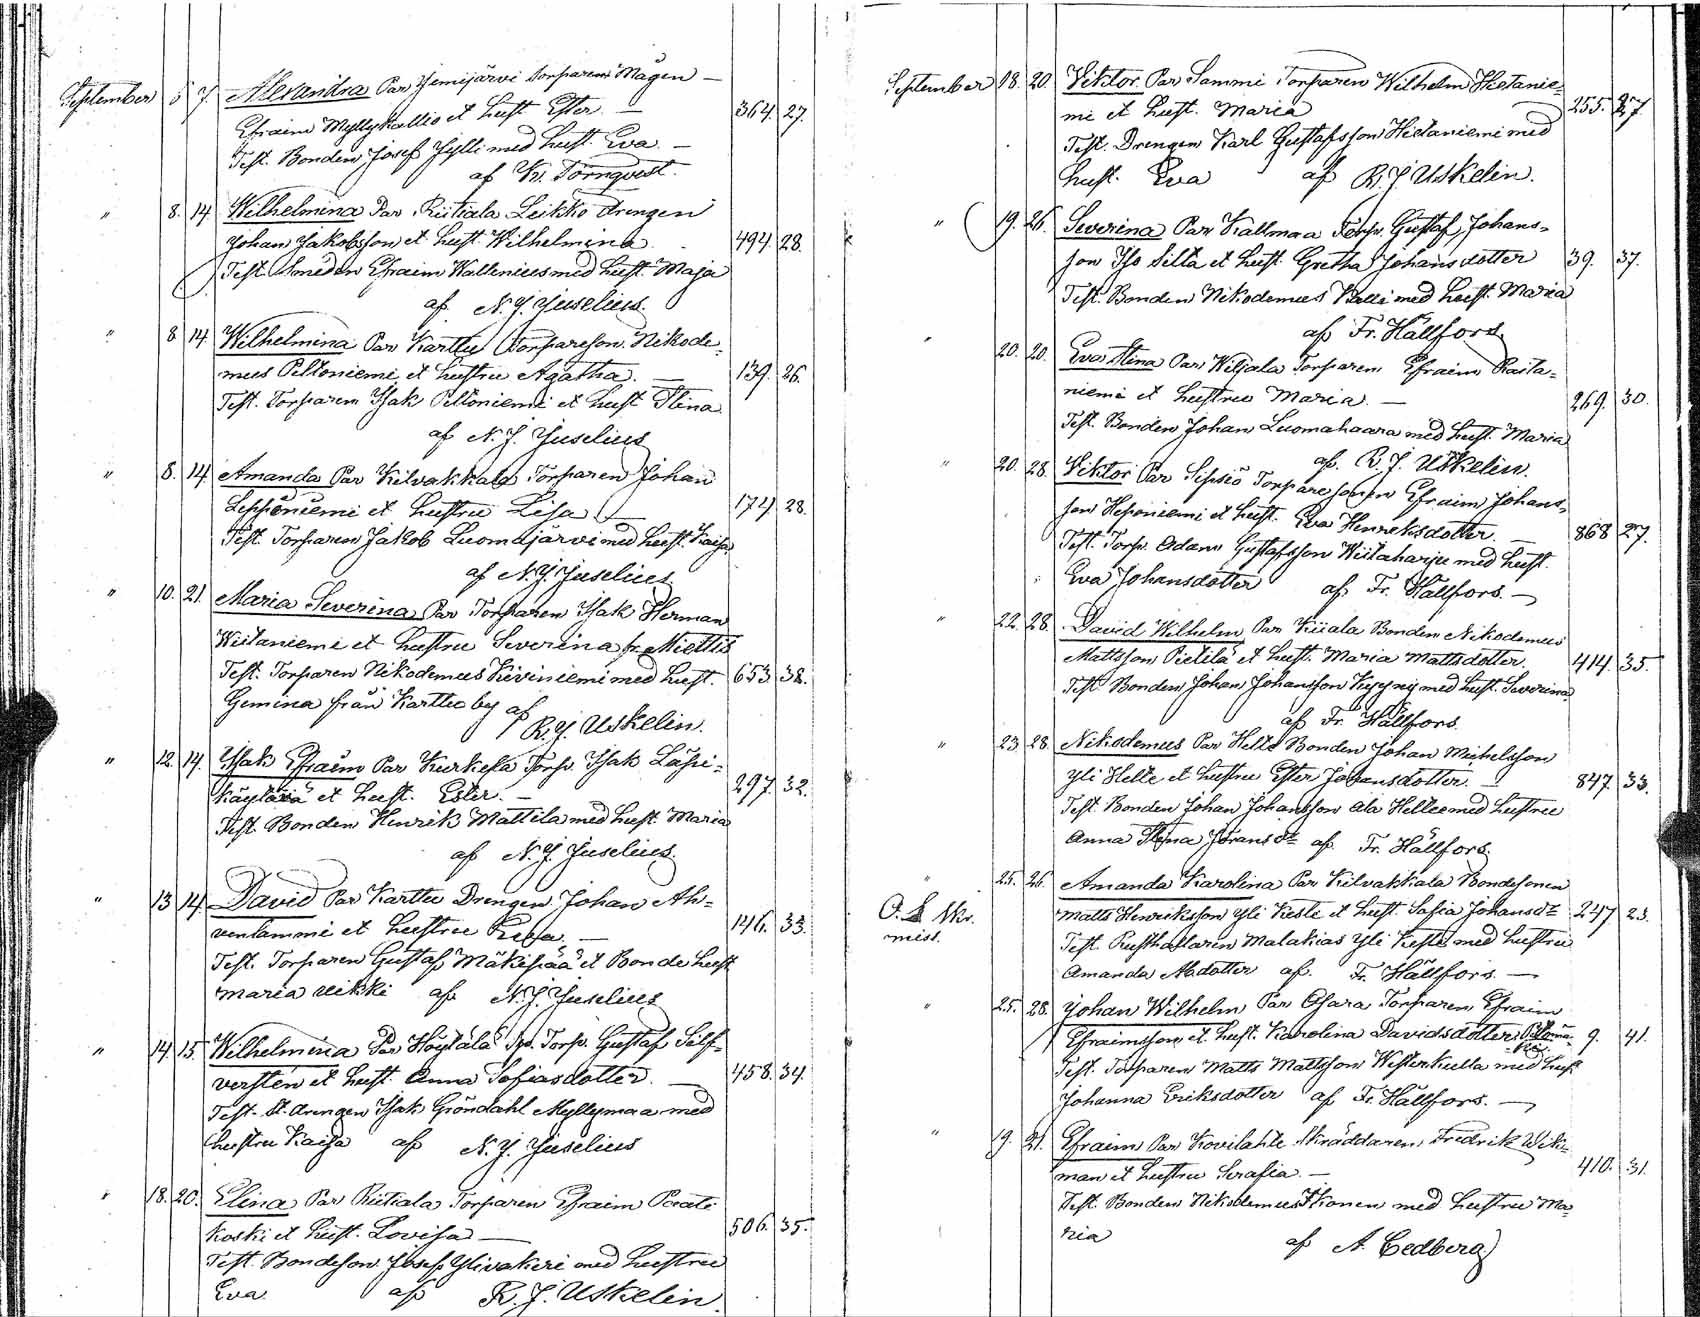 September 5 7. Alexandra Par Jemijärvi torparen Mågen —
Efraim Myllykallio et hust Ester — 364. 27.
Test. Bonden Josef Jylli med hust. Eva. —
af K. Törnqvist.
" 8. 14 Wilhelmina Par. Riitiala Leikko drengen
Johan Jakobsson et hust. Wilhelmina 494 28.
Test Smeden Efraim Wallenius med hust. Maja
af N. J. Juselius.
" 8 14. Wilhelmina Par Karttu Torpareson Nikode-
mus Peltoniemi et hustru Agatha. — 139. 26.
Test. Torparen Isak Peltoniemi et hust Stina
af N. J. Juselius
" 8. 14. Amanda Par Kilvakkala Torparen Johan
Leppöniemi et hustru Lisa — 174 28.
Test. Torparen Jakob Luomajärvi med hust. Kaisa
af N. J. Juselius
" 10. 21. Maria Severina Par Torparen Isak Herman
Wiitaniemi et hustru Severina fr. Miettis
Test. Torparen Nikodemus Kiviniemi med hust. 653 38.
Gemina från Karttu by af
R. J. Uskelin.
" 12. 14. Isak Efraim Par Kurkela Torp. Isak Läspi-
käytävä et hust. Ester. — 297. 32.
Test. Bonden Henrik Mattila med hust Maria
af N. J. Juselius.
" 13 14. David Par Karttu Drengen Johan Ah-
venlammi et hustru Eva. — 146. 33.
Test. Torparen Gustaf Mäkipää et Bonde hust
Maria Uikki af N. J. Juselius
" 14. 15. Wilhelmina Par Höytälä Torp. Gustaf Sälf-
versten et hust. Anna Sofiasdotter. — 458. 34.
Test. drengen Isak Gröndahl Myllymaa med
hustru Kaisa af N. J. Juselius
" 18. 20. Elina Par Riitiala Torparen Efraim Poati
koski et hust. Lovisa — 506. 35.
Test. Bondeson Josef Ylivakeri med hustru
Eva. af R. J. Uskelin.
September 18. 20. Viktor Par Sammi Torparen Wilhelm Hietanie-
mi et hust. Maria 255. 27.
Test. Drengen Karl Gustafsson Hietaniemi med
hust. Eva af R. J. Uskelin.
" 19. 26. Severina Par Kallmaa Torp. Gustaf Johans-
son Iso Silta et hust. Gretha Johansdotter 39. 37.
Test. Bonden Nikodemus Kalli med hust. Maria
af Fr. Hällfors
20. 20. Eva Stina Par Wiljala Torparen Efraim Raita-
niemi et hustru Maria. — 269. 30.
Test. Bonden Johan Luomahaara med hust. Maria
af. R. J. Uskelin.
" 20. 28. Viktor Par Sipsiö Torpare sonen Efraim Johans-
son Heponiemi et hust. Eva Henriksdotter. — 868 27.
Test. Torp. Adam Gustafsson Wiitaharju med hust.
Eva Johansdotter af Fr. Hällfors. —
" 22. 28. David Wilhelm Par Kiiala Bonden Nikodemus
Mattsson Pietilä et hust. Maria Mattsdotter. 414. 35.
Test Bonden Johan Johansson Kyyny med hust. Severina
af Fr. Hällfors.
" 23. 28. Nikodemus Par Helle Bonden Johan Michelsson
Yli Helle et hustru Ester Johansdotter. — 847. 33.
Test. Bonden Johan Johansson Ala Helle med hustru
Anna Stina Göransdr af Fr. Hällfors.
" 25. 26. Amanda Karolina Par Kilvakkala Bondesonen
miss. Matts Henriksson Yli Keste et hust. Sofia Johansdr 247 23.
Test. Rusthållaren Malakias Yli Keste med hustru
Amanda Madotter af. Fr. Hällfors. —
" 25. 28. Johan Wilhelm Par Osara Torparen Efraim
Efraimsson et hust. Karolina Davidsdotter 9. 41.
Test. Torparen Matts Mattsson Westerkulla med hust.
Johanna Eriksdotter af Fr. Hällfors. —
" 19. 21. Efraim Par Kovilahti Skräddaren Fredrik Wik-
man et hustru Serafia — 410. 31.
Test. Bonden Nikodemus Ikonen med hustru Ma-
ria af A. Cedberg